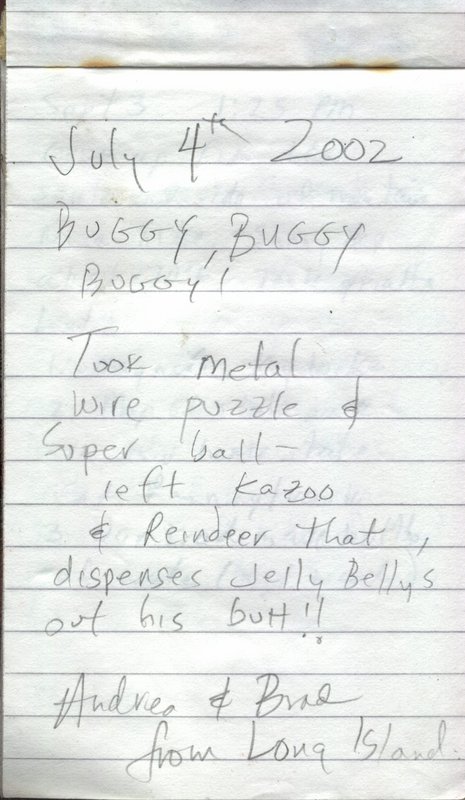 July 4th 2002
BUGGY, BUGGY
BUGGY!
Took metal
wire puzzle &
Super ball -
left kazoo
& Reindeer that,
dispenses Jelly Bellys
out his butt!!
Andrea & Brad
from Long Island.